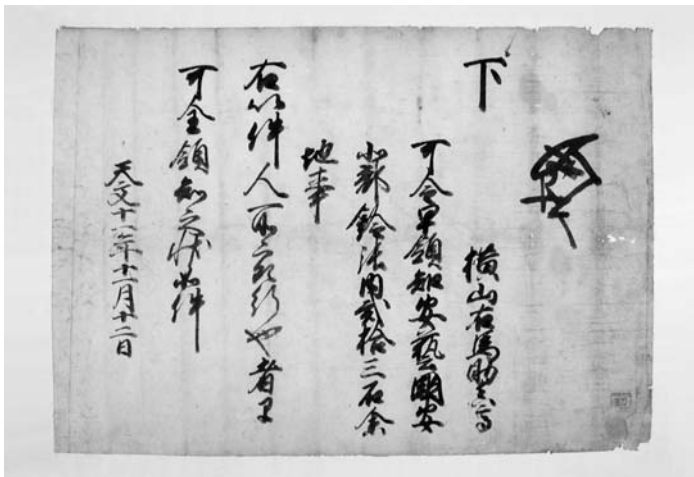 下　横山右馬助
可令早領知安藝國安
北郡鈴張内貳拾三石余
地事
右以件人所宛行也者早
可全領知之状如件
天文十八年十一月十二日